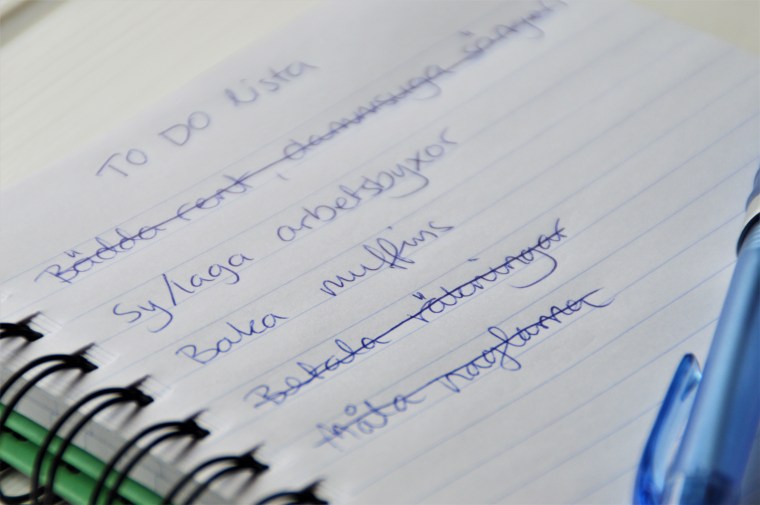 TO DO lista
Bädda rent, dammsuga sängar
Sy/laga arbetsbyxor
Baka muffins
Betala räkningar
Måla naglarna